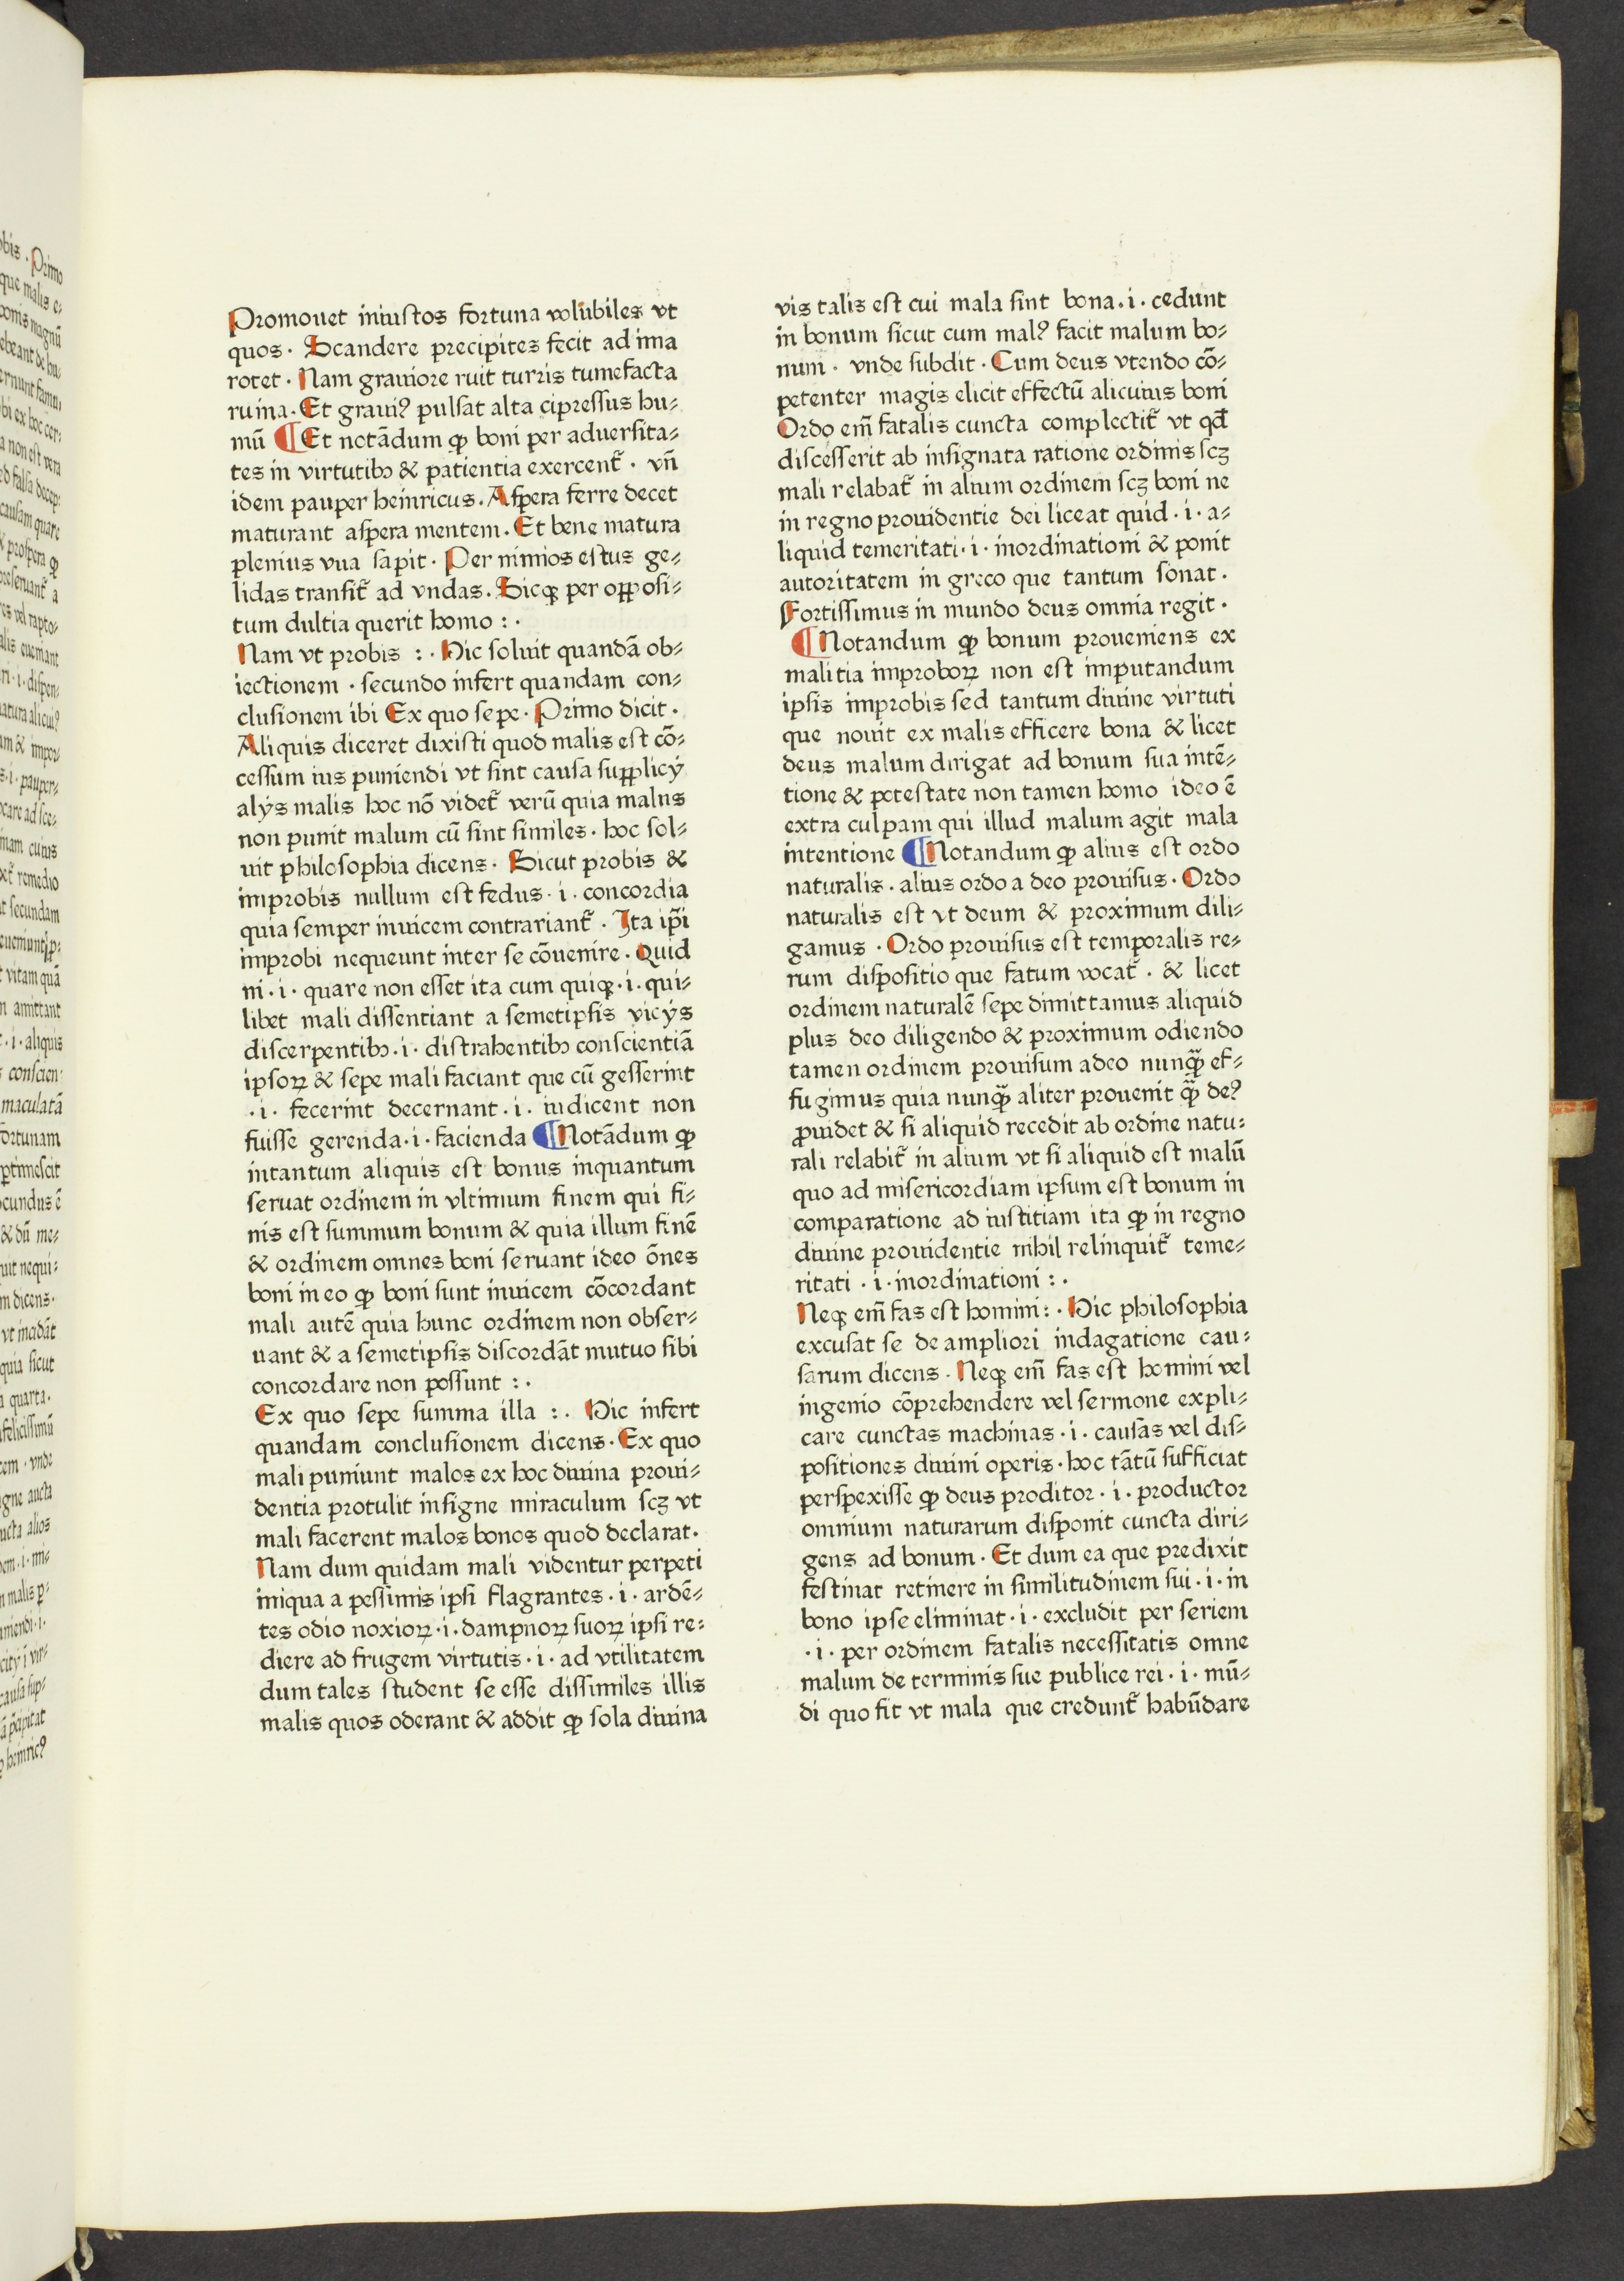 Promouet iniustos fortuna volubiles vt
quos. Scandere precipites fecit ad ima
rotet. Nam grauiore ruit turris tumefacta
ruina. Et graui⁹ pulsat alta cipressus hu⸗
mū ¶ Et notādum ꝙ boni per aduersita⸗
tes in virtutibꝫ & patientia exercent̃. vñ
idem pauper heinricus. Aspera ferre decet
maturant aspera mentem. Et bene matura
plenius vua sapit. Per nimios estus ge⸗
lidas transit̃ ad vndas. Sicqꝫ per opposi⸗
tum dultia querit homo :.
Nam vt probis :. Hic soluit quandā ob⸗
iectionem. secundo infert quandam con⸗
clusionem ibi Ex quo sepe. Primo dicit.
Aliquis diceret dixisti quod malis est cō⸗
cessum ius puniendi vt sint causa supplicÿ
alÿs malis hoc nō videt̃ verū quia malus
non punit malum cū sint similes. hoc sol⸗
uit philosophia dicens. Sicut probis &
improbis nullum est fedus .i. concordia
quia semper inuicem contrariant̃. Ita ip̄i
improbi nequeunt inter se cōuenire. Quid
ni .i. quare non esset ita cum quiqꝫ .i. qui⸗
libet mali dissentiant a semetipsis vicÿs
discerpentibꝫ .i. distrahentibꝫ conscientiā
ipsoꝝ & sepe mali faciant que cū gesserint
.i. fecerint decernant .i. iudicent non
fuisse gerenda .i. facienda ¶ Notādum ꝙ
intantum aliquis est bonus inquantum
seruat ordinem in vltimum finem qui fi⸗
nis est summum bonum & quia illum finē
& ordinem omnes boni seruant ideo ōnes
boni in eo ꝙ boni sunt inuicem cōcordant
mali autē quia hunc ordinem non obser⸗
uant & a semetipsis discordāt mutuo sibi
concordare non possunt :.
Ex quo sepe summa illa :. Hic infert
quandam conclusionem dicens. Ex quo
mali puniunt malos ex hoc diuina proui⸗
dentia protulit insigne miraculum scꝫ vt
mali facerent malos bonos quod declarat.
Nam dum quidam mali videntur perpeti
iniqua a pessimis ipsi flagrantes .i. ardē⸗
tes odio noxioꝝ .i. dampnoꝝ suoꝝ ipsi re⸗
diere ad frugem virtutis .i. ad vtilitatem
dum tales student se esse dissimiles illis
malis quos oderant & addit ꝙ sola diuina
vis talis est cui mala sint bona .i. cedunt
in bonum sicut cum mal⁹ facit malum bo⸗
num. vnde subdit. Cum deus vtendo cō⸗
petenter magis elicit effectū alicuius boni
Ordo em̄ fatalis cuncta complectit̃ vt qd̄
discesserit ab insignata ratione ordinis scꝫ
mali relabat̃ in alium ordinem scꝫ boni ne
in regno prouidentie dei liceat quid .i. a⸗
liquid temeritati .i. inordinationi & ponit
autoritatem in greco que tantum sonat.
Fortissimus in mundo deus omnia regit.
¶ Notandum ꝙ bonum proueniens ex
malitia improboꝝ non est imputandum
ipsis improbis sed tantum diuine virtuti
que nouit ex malis efficere bona & licet
deus malum dirigat ad bonum sua intē⸗
tione & potestate non tamen homo ideo ē
extra culpam qui illud malum agit mala
intentione ¶ Notandum ꝙ alius est ordo
naturalis. alius ordo a deo prouisus. Ordo
naturalis est vt deum & proximum dili⸗
gamus. Ordo prouisus est temporalis re⸗
rum dispositio que fatum vocat̃. & licet
ordinem naturalē sepe dimittamus aliquid
plus deo diligendo & proximum odiendo
tamen ordinem prouisum adeo nunqꝫ̄ ef⸗
fugimus quia nunqꝫ̄ aliter prouenit qꝫ̄ de⁹
ꝓuidet & si aliquid recedit ab ordine natu⸗
rali relabit̃ in alium vt si aliquid est malū
quo ad misericordiam ipsum est bonum in
comparatione ad iustitiam ita ꝙ in regno
diuine prouidentie nihil relinquit̃ teme⸗
ritati .i. inordinationi :.
Neqꝫ em̄ fas est homini :. Hic philosophia
excusat se de ampliori indagatione cau⸗
sarum dicens. Neqꝫ em̄ fas est homini vel
ingenio cōprehendere vel sermone expli⸗
care cunctas machinas .i. causas vel dis⸗
positiones diuini operis. hoc tātū sufficiat
perspexisse ꝙ deus proditor .i. productor
omnium naturarum disponit cuncta diri⸗
gens ad bonum. Et dum ea que predixit
festinat retinere in similitudinem sui .i. in
bono ipse eliminat .i. excludit per seriem
.i. per ordinem fatalis necessitatis omne
malum de terminis sue publice rei .i. mū⸗
di quo fit vt mala que credunt̃ habūdare